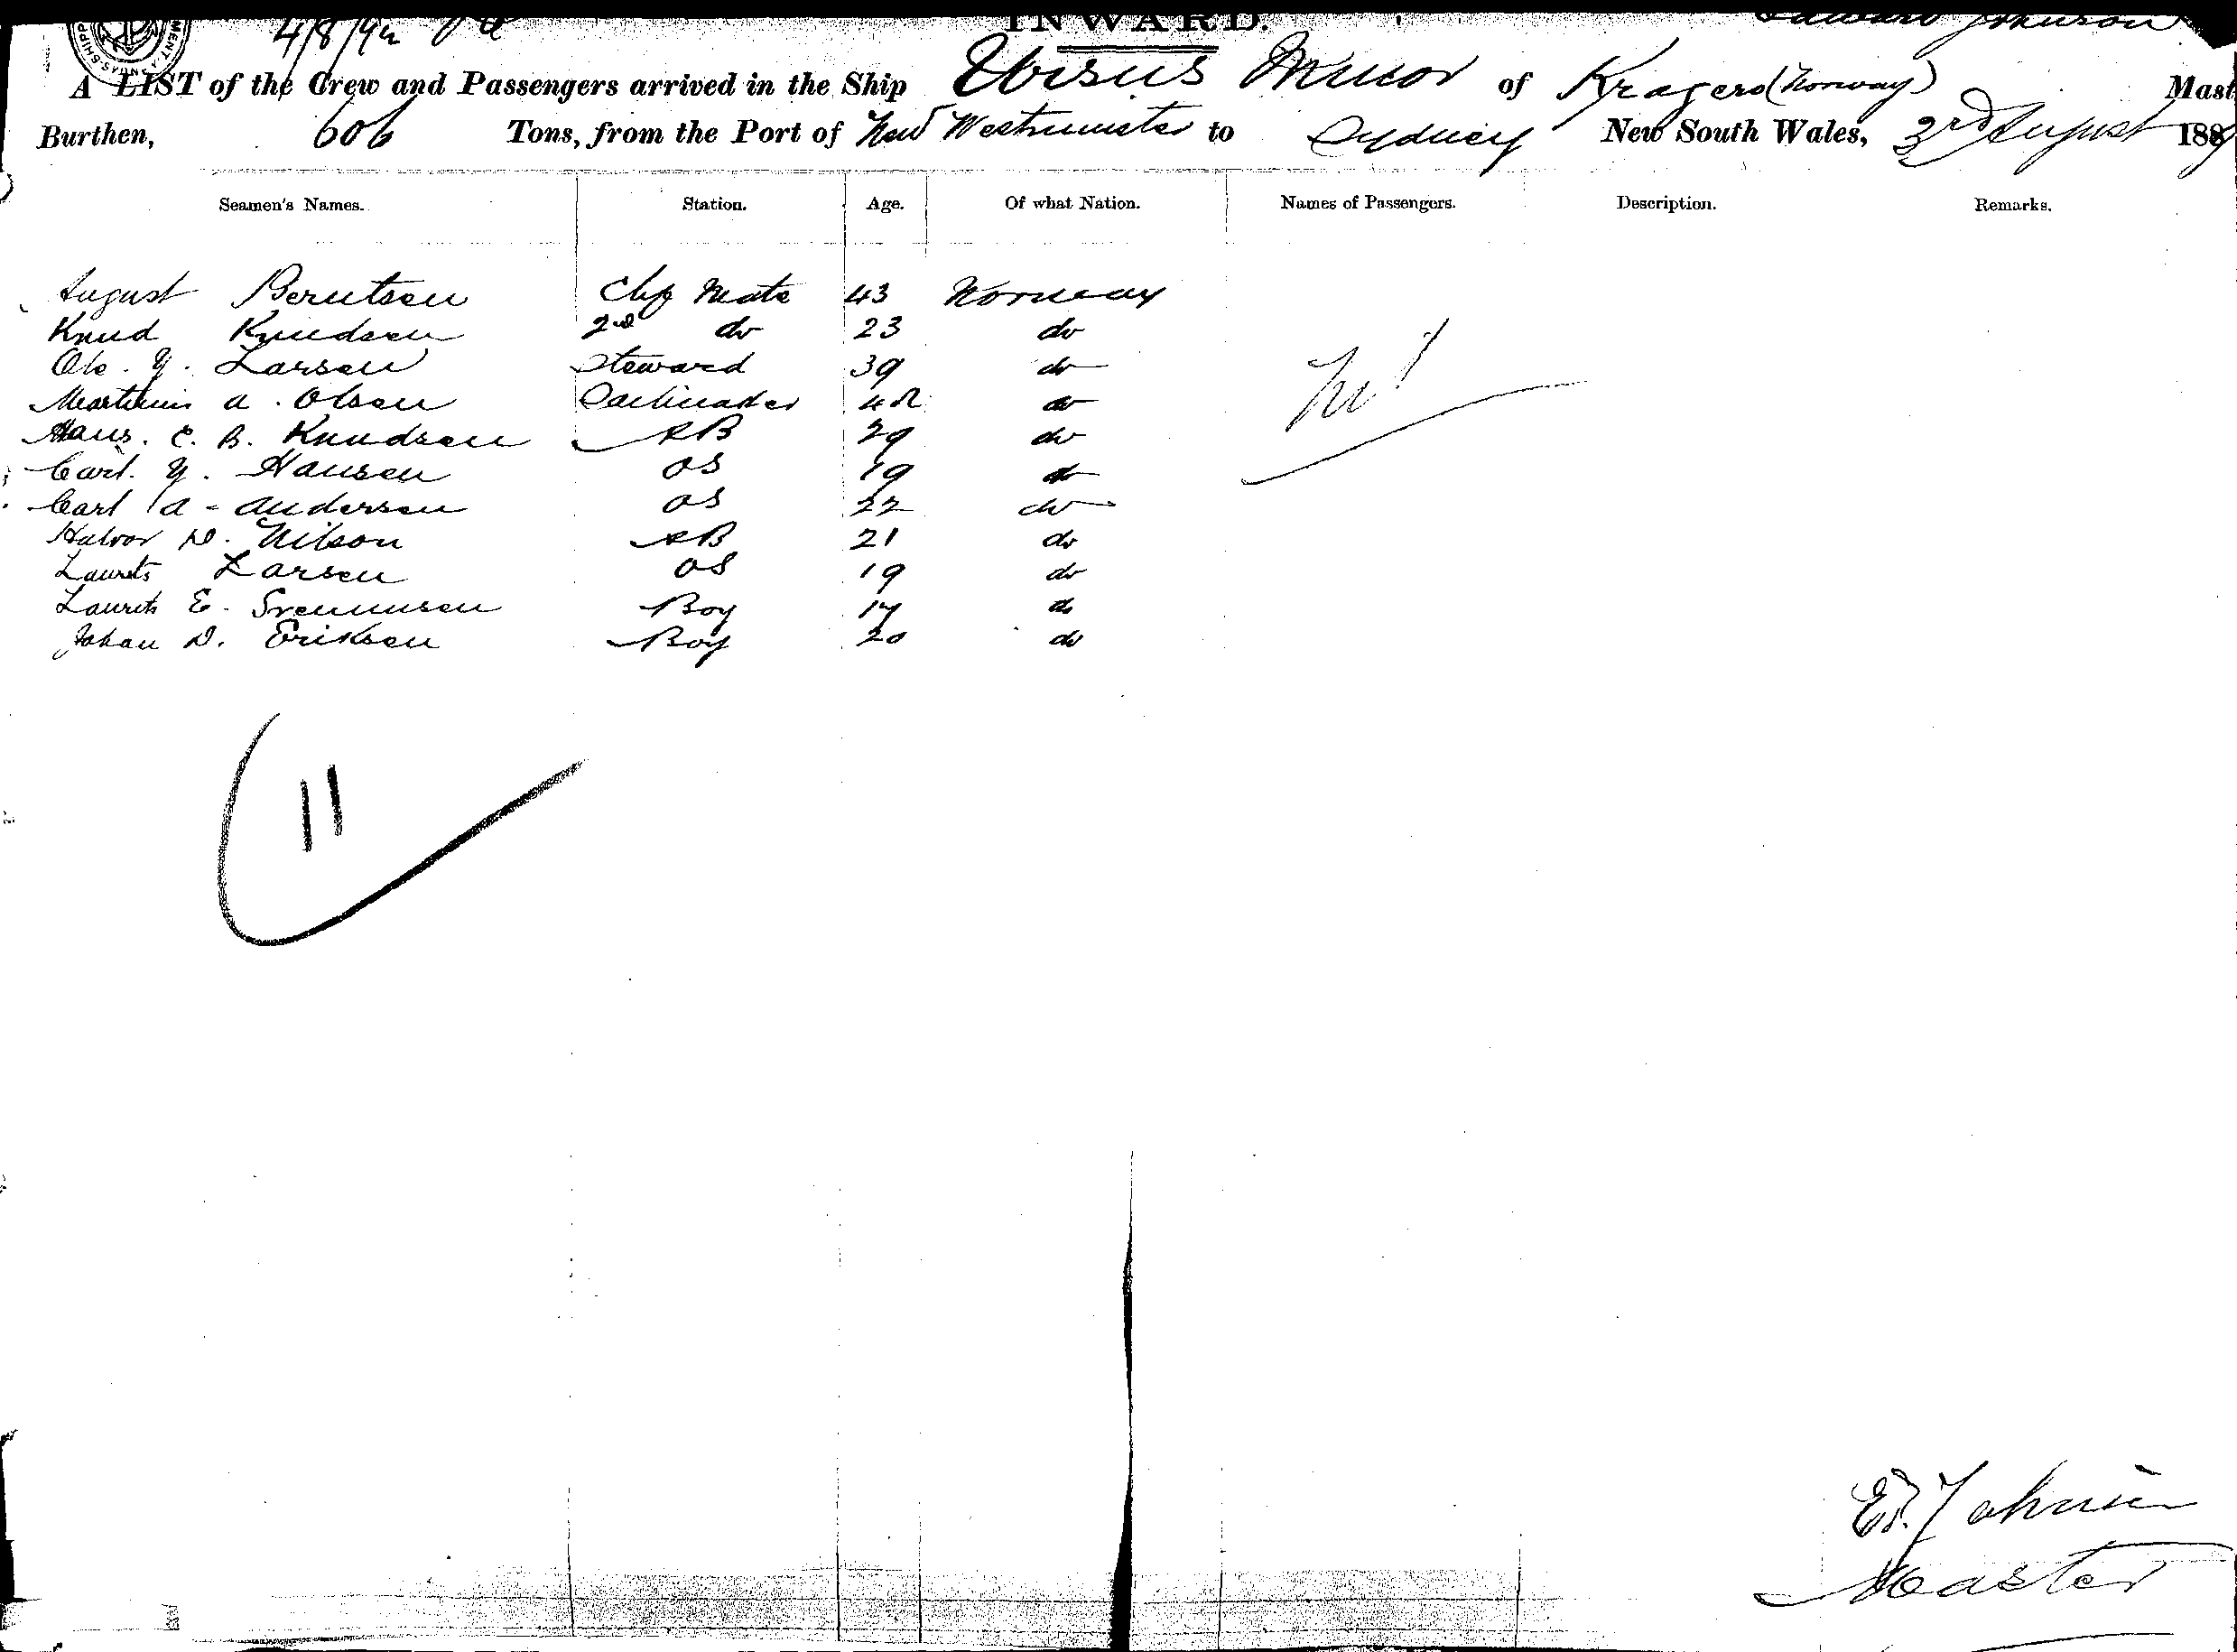 4/8/92
INWARD.
Edward Johnson
A LIST of the Crew and Passengers arrived in the Ship Ursus Minor of Kragero (Norway) Mast
Burthen, 606 Tons, from the Port of New Westminster to Sydney New South Wales, 3rd August 188
Seamen's Names. Station. Age. Of what Nation. Names of Passengers. Description. Remarks.
August Berntsen Chf Mate 43 Norway
Knud Knudsen 2nd do 23 do
Ole. Y. Larsen Steward 39 do
Martinius A. Olsen Sailmaker 42 do
Hans. C. B. Knudsen AB 29 do
Carl. Y. Hansen OS 19 do
Carl A - Andersen OS 22 do
Halvor N. Nilson AB 21 do
Laurits Larsen OS 19 do
Laurits E. Svennusen Boy 17 do
Johan D. Eriksen Boy 20 do
Nil
11
Ed. Johnsen
Master